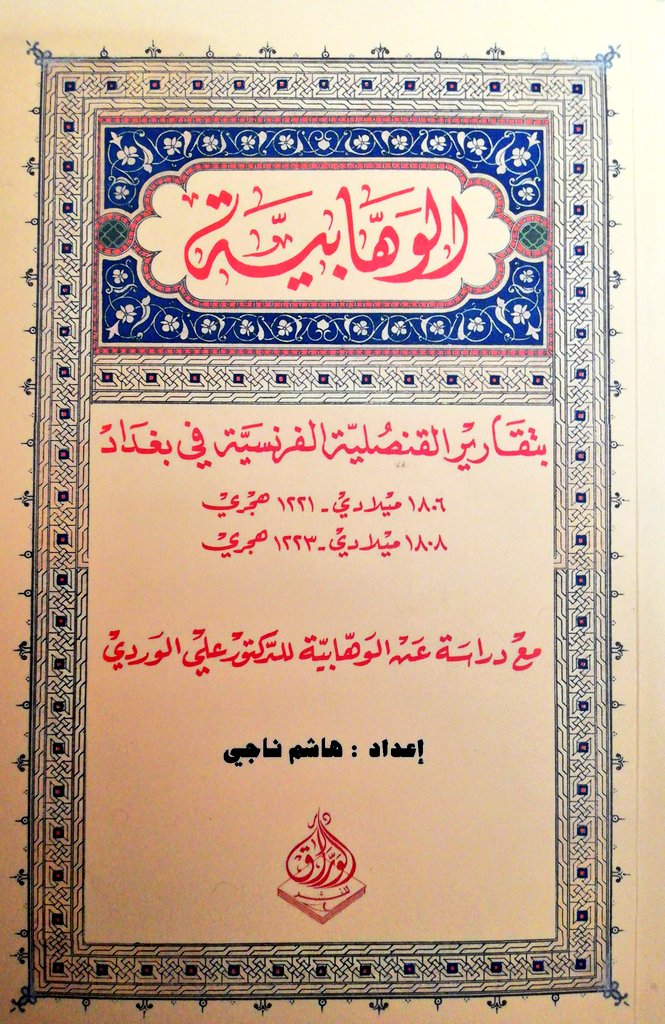 الوَهَّابيَّة
بتقَارير القنصُليَّة الفرنسيَّة في بغدَاد
١٨٠٦ ميْلادي - ١٢٢١ هجري
١٨٠٨ ميْلادي - ١٢٢٣ هجري
مع دراسَة عَن الوَهّابيّة للدّكتور علي الوَردي
إعداد : هاشم ناجي
دار
الورّاق
للنشر